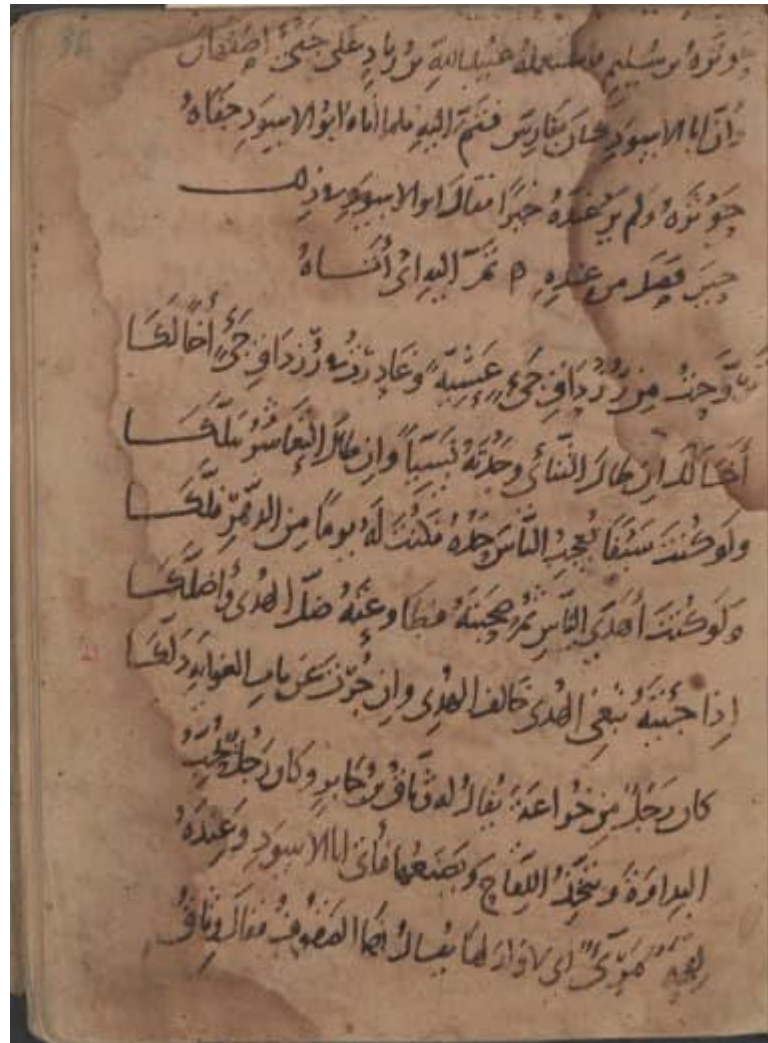 حوثرة بن سليم فاستعمله عبيد الله بن زياد على جي اصفهان
وأن أبا الاسود كان بفارس فقدم اليه فلما أتاه ابو الاسود جفاه
حوثرة ولم ير عنده خيرا فقال ابو الاسود في ذلك
حين قفل من عنده ثم
تروحت من رزداق جي عشية وغادرت في رزداق جي أخا لكا
أخا لك ان طال التنائي وجدته نسيا وان طال التعاشر ملكا
ولو كنت سيفا يعجب الناس حده فكنت له يوما من الدهر فلكا
ولو كنت أهدى الناس ثم صحبته فطاوعته ضل الهدى وأضلكا
إذا جئته تبغي الهدى خالف الهدى وان جرت عن باب الغواية دلكا
كان رجل من خزاعة يقال له وثاق بن جابر وكان رجل يحب
اللقاح ويصنعها فأتى أبا الاسود وعنده
لها يقال لها الصفوف فقال وثاق